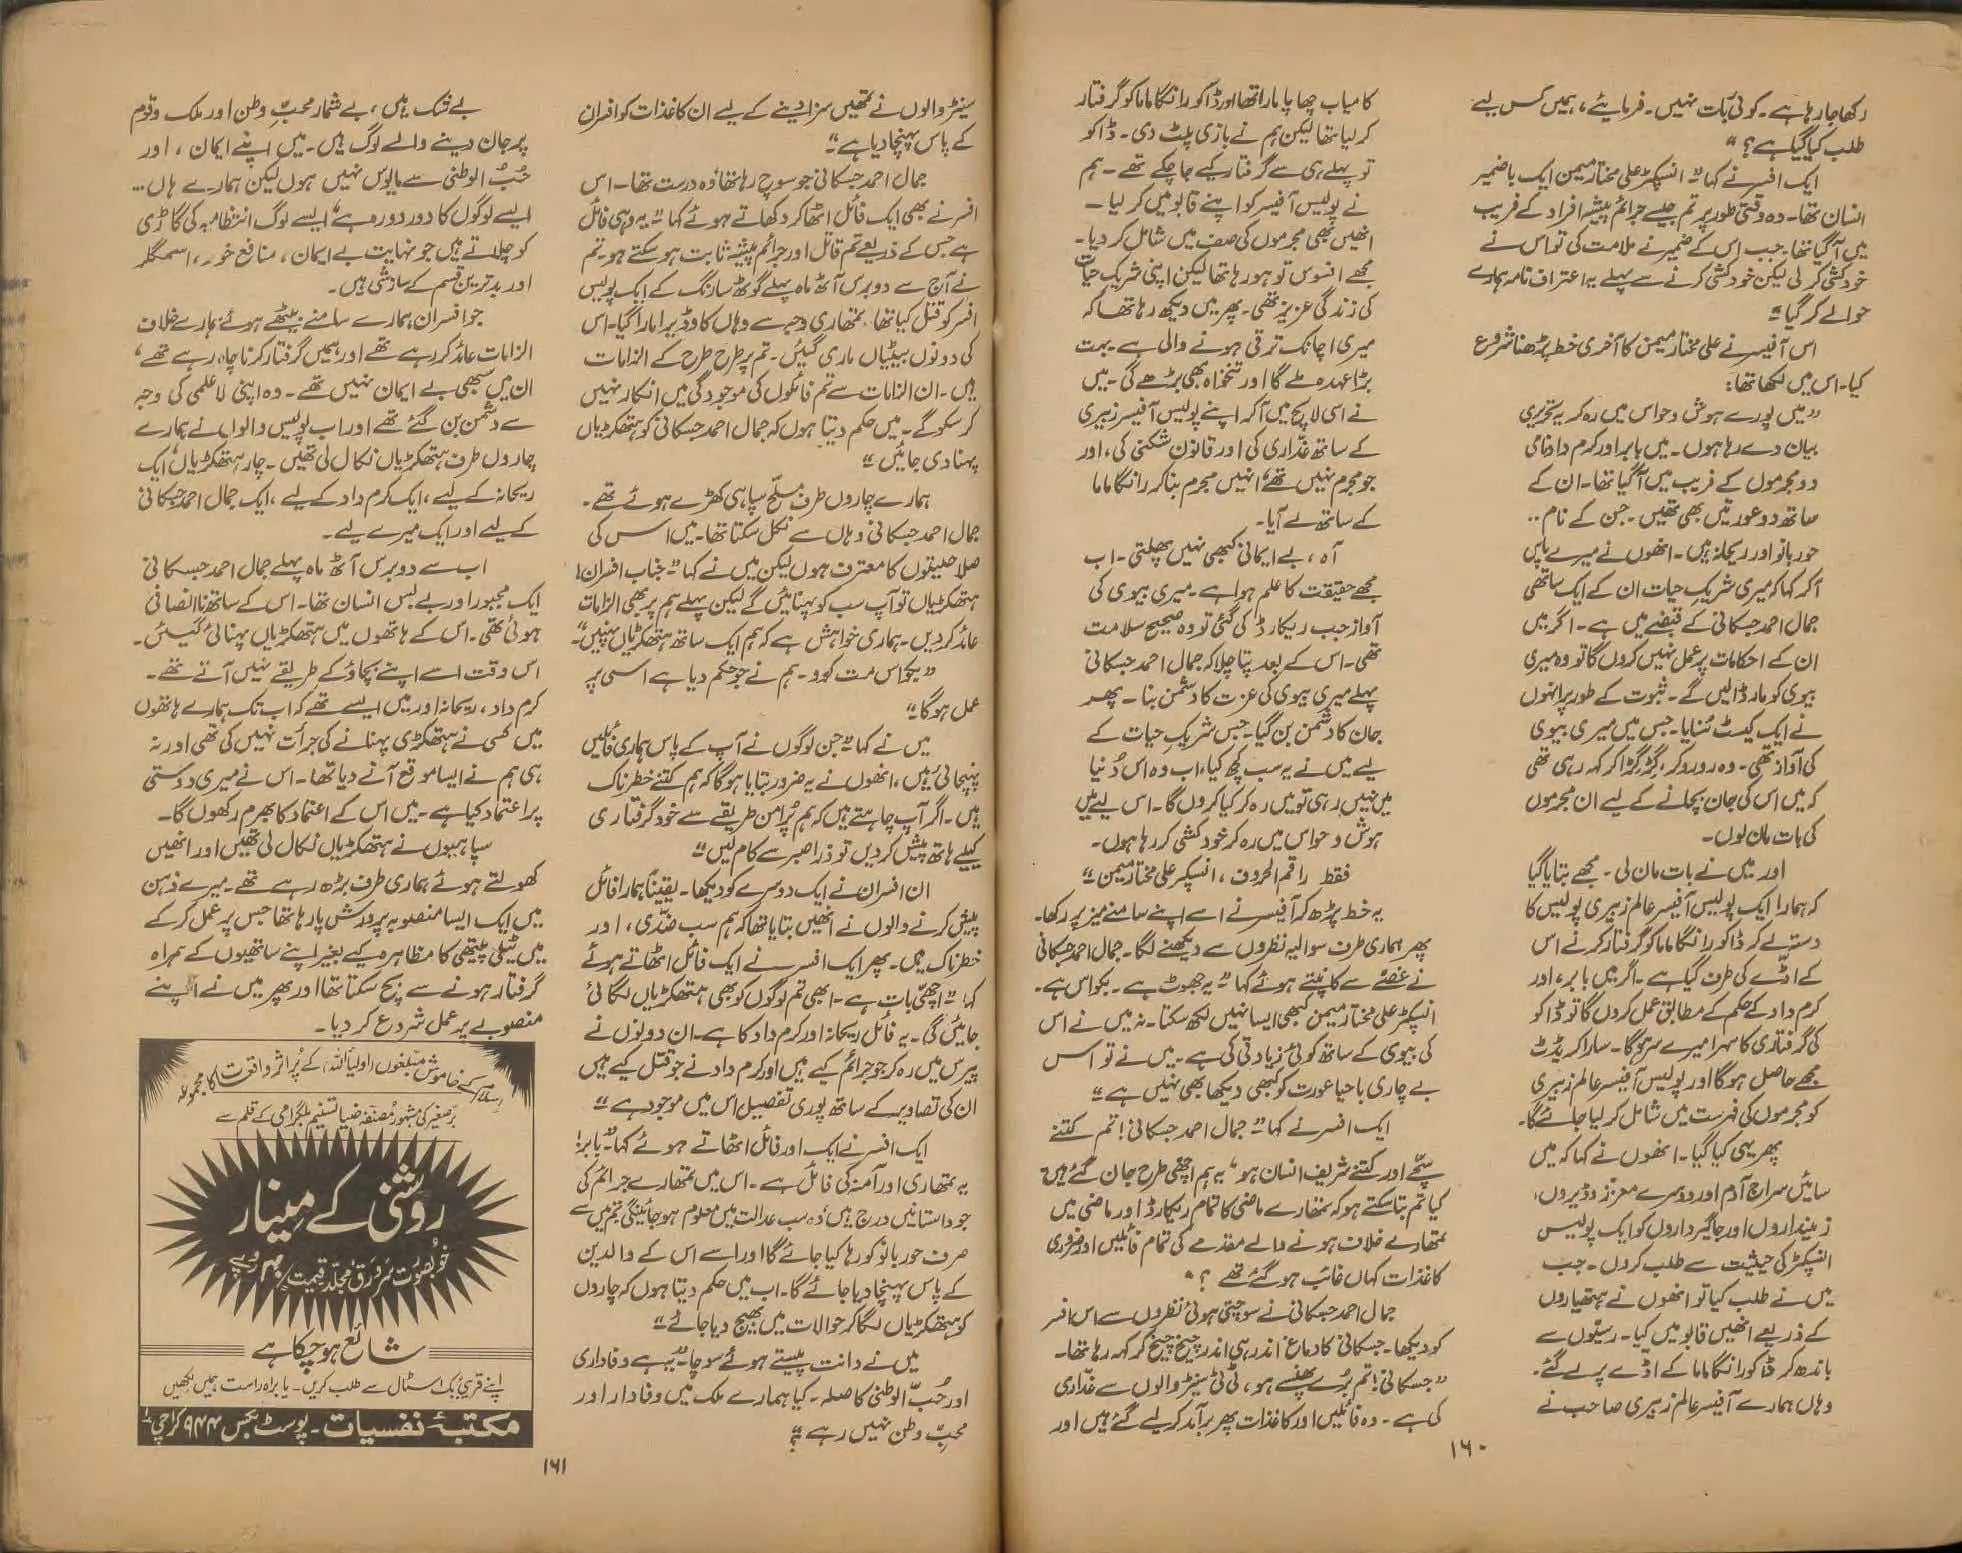 رکھا جا رہا ہے۔ کوئی بات نہیں۔ فرمایئے، ہمیں کس لیے
طلب کیا گیا ہے؟"
ایک افسر نے کہا "انسپکٹر علی مختار میمن ایک باضمیر
انسان تھا۔ وہ وقتی طور پر تم جیسے جرائم پیشہ افراد کے فریب
میں آگیا تھا۔ جب اس کے ضمیر نے ملامت کی تو اس نے
خودکشی کر لی لیکن خودکشی کرنے سے پہلے یہ اعتراف نامہ ہمارے
حوالے کر گیا"
اس آفیسر نے علی مختار میمن کا آخری خط پڑھنا شروع
کیا۔ اس میں لکھا تھا:
"میں پورے ہوش و حواس میں رہ کر یہ تحریری
بیان دے رہا ہوں۔ میں بابر اور کرم داد نامی
دو مجرموں کے فریب میں آگیا تھا۔ ان کے
ساتھ دو عورتیں بھی تھیں۔ جن کے نام..
حور بانو اور ریحانہ ہیں۔ انھوں نے میرے پاس
آکر کہا کہ میری شریک حیات ان کے ایک ساتھی
جمال احمد جسکانی کے قبضے میں ہے۔ اگر میں
ان کے احکامات پر عمل نہیں کروں گا تو وہ میری
بیوی کو مار ڈالیں گے۔ ثبوت کے طور پر انہوں
نے ایک کیسٹ سُنایا۔ جس میں میری بیوی
کی آواز تھی۔ وہ رو رو کر، گڑگڑا کر کہہ رہی تھی
کہ میں اس کی جان بچانے کے لیے ان مجرموں
کی بات مان لوں۔
اور میں نے بات مان لی۔ مجھے بتایا گیا
کہ ہمارا ایک پولیس آفیسر عالم زبیری پولیس کا
دستہ لے کر ڈاکو رانگا ماما کو گرفتار کرنے اس
کے اڈے کی طرف گیا ہے۔ اگر میں بابر، اور
کرم داد کے حکم کے مطابق عمل کروں گا تو ڈاکو
کی گرفتاری کا سہرا میرے سر ہوگا۔ سارا کریڈٹ
مجھے حاصل ہوگا اور پولیس آفیسر عالم زبیری
کو مجرموں کی فہرست میں شامل کر لیا جائے گا۔
پھر یہی کیا گیا۔ انھوں نے کہا کہ میں
سائیں سراج آدم اور دوسرے معزز وڈیروں،
زمینداروں اور جاگیرداروں کو ایک پولیس
انسپکٹر کی حیثیت سے طلب کروں۔ جب
میں نے طلب کیا تو انھوں نے ہتھیاروں
کے ذریعے انھیں قابو میں کیا۔ رسیّوں سے
باندھ کر ڈاکو رانگا ماما کے اڈے پر لے گئے۔
وہاں ہمارے آفیسر عالم زبیری صاحب نے
کامیاب چھاپا مارا تھا اور ڈاکو رانگا ماما کو گرفتار
کر لیا تھا لیکن ہم نے بازی پلٹ دی۔ ڈاکو
تو پہلے ہی سے گرفتار کیے جا چکے تھے۔ ہم
نے پولیس آفیسر کو اپنے قابو میں کر لیا۔
انھیں بھی مجرموں کی صف میں شامل کر دیا۔
مجھے افسوس تو ہو رہا تھا لیکن اپنی شریک حیات
کی زندگی عزیز تھی۔ پھر میں دیکھ رہا تھا کہ
میری اچانک ترقی ہونے والی ہے۔ بہت
بڑا عہدہ ملے گا اور تنخواہ بھی بڑھے گی۔ میں
نے اسی لالچ میں آکر اپنے پولیس آفیسر زبیری
کے ساتھ غدّاری کی اور قانون شکنی کی، اور
جو مجرم نہیں تھے، انہیں مجرم بنا کر رانگا ماما
کے ساتھ لے آیا۔
آہ، بے ایمانی کبھی نہیں پھلتی۔ اب
مجھے حقیقت کا علم ہوا ہے۔ میری بیوی کی
آواز جب ریکارڈ کی گئی تو وہ صحیح سلامت
تھی۔ اس کے بعد پتا چلا کہ جمال احمد جسکانی
پہلے میری بیوی کی عزت کا دشمن بنا۔ پھر
جان کا دشمن بن گیا۔ جس شریک حیات کے
لیے میں نے یہ سب کچھ کیا، اب وہ اس دُنیا
میں نہیں رہی تو میں رہ کر کیا کروں گا۔ اس لیے میں
ہوش و حواس میں رہ کر خودکشی کر رہا ہوں۔
فقط راقم الحروف، انسپکٹر علی مختار میمن"
یہ خط پڑھ کر آفیسر نے اسے اپنے سامنے میز پر رکھا۔
پھر ہماری طرف سوالیہ نظروں سے دیکھنے لگا۔ جمال احمد جسکانی
نے غصّے سے کانپتے ہوئے کہا "یہ جھوٹ ہے۔ بکواس ہے۔
انسپکٹر علی مختار میمن کبھی ایسا نہیں لکھ سکتا۔ نہ میں نے اس
کی بیوی کے ساتھ کوئی زیادتی کی ہے۔ میں نے تو اس
بے چاری با حیا عورت کو کبھی دیکھا بھی نہیں ہے"
ایک افسر نے کہا "جمال احمد جسکانی! تم کتنے
سچّے اور کتنے شریف انسان ہو، یہ ہم اچھی طرح جان گئے ہیں
کیا تم بتا سکتے ہو کہ تمھارے ماضی کا تمام ریکارڈ اور ماضی میں
تمھارے خلاف ہونے والے مقدمے کی تمام فائلیں اور ضروری
کاغذات کہاں غائب ہو گئے تھے؟"
جمال احمد جسکانی نے سوچتی ہوئی نظروں سے اس افسر
کو دیکھا۔ جسکانی کا دماغ اندر ہی اندر چیخ چیخ کر کہہ رہا تھا۔
"جسکانی! تم بُرے پھنسے ہو، ٹی ٹی سینٹر والوں سے غداری
کی ہے۔ وہ فائلیں اور کاغذات پھر برآمد کر لیے گئے ہیں اور
۱۶۰
سینٹر والوں نے تمھیں سزا دینے کے لیے ان کاغذات کو افسران
کے پاس پہنچا دیا ہے"
جمال احمد جسکانی جو سوچ رہا تھا، وہ درست تھا۔ اس
افسر نے بھی ایک فائل اٹھا کر دکھاتے ہوئے کہا "یہ وہی فائل
ہے جس کے ذریعے تم قاتل اور جرائم پیشہ ثابت ہو سکتے ہو۔ تم
نے آج سے دو برس آٹھ ماہ پہلے گوٹھ سارنگ کے ایک پولیس
افسر کو قتل کیا تھا۔ تمھاری وجہ سے وہاں کا وڈیرا مارا گیا۔ اس
کی دونوں بیٹیاں ماری گئیں۔ تم پر طرح طرح کے الزامات
ہیں۔ ان الزامات سے تم فائلوں کی موجودگی میں انکار نہیں
کر سکو گے۔ میں حکم دیتا ہوں کہ جمال احمد جسکانی کو ہتھکڑیاں
پہنا دی جائیں"
ہمارے چاروں طرف مسلّح سپاہی کھڑے ہوئے تھے۔
جمال احمد جسکانی وہاں سے نکل سکتا تھا۔ میں اس کی
صلاحیتوں کا معترف ہوں لیکن میں نے کہا "جناب افسران!
ہتھکڑیاں تو آپ سب کو پہنائیں گے لیکن پہلے ہم پر بھی الزامات
عائد کر دیں۔ ہماری خواہش ہے کہ ہم ایک ساتھ ہتھکڑیاں پہنیں"
"بکواس مت کرو۔ ہم نے جو حکم دیا ہے اسی پر
عمل ہوگا"
میں نے کہا "جن لوگوں نے آپ کے پاس ہماری فائلیں
پہنچائی ہیں، انھوں نے یہ ضرور بتایا ہوگا کہ ہم کتنے خطرناک
ہیں۔ اگر آپ چاہتے ہیں کہ ہم پُرامن طریقے سے خود گرفتاری
کیلئے ہاتھ پیش کر دیں تو ذرا صبر سے کام لیں"
ان افسران نے ایک دوسرے کو دیکھا۔ یقیناً ہمارا فائل
پیش کرنے والوں نے انھیں بتایا تھا کہ ہم سب ضدّی، اور
خطرناک ہیں۔ پھر ایک افسر نے ایک فائل اٹھاتے ہوئے
کہا "اچھی بات ہے۔ ابھی تم لوگوں کو بھی ہتھکڑیاں لگائی
جائیں گی۔ یہ فائل ریحانہ اور کرم داد کا ہے۔ ان دونوں نے
پیرس میں رہ کر جو جرائم کیے ہیں اور کرم داد نے جو قتل کیے ہیں
ان کی تصاویر کے ساتھ پوری تفصیل اس میں موجود ہے"
ایک افسر نے ایک اور فائل اٹھاتے ہوئے کہا "بابر!
یہ تمھاری اور آمنہ کی فائل ہے۔ اس میں تمھارے جرائم کی
جو داستانیں درج ہیں، وہ سب عدالت میں معلوم ہو جائینگی تم میں سے
صرف حور بانو کو رہا کیا جائے گا اور اسے اس کے والدین
کے پاس پہنچا دیا جائے گا۔ اب میں حکم دیتا ہوں کہ چاروں
کو ہتھکڑیاں لگا کر حوالات میں بھیج دیا جائے"
میں نے دانت پیستے ہوئے سوچا۔ "یہ ہے وفاداری
اور حُبّ الوطنی کا صلہ۔ کیا ہمارے ملک میں وفادار اور
محبِّ وطن نہیں رہے؟"
بے شک ہیں، بے شمار محبِّ وطن اور ملک و قوم
پر جان دینے والے لوگ ہیں۔ میں اپنے ایمان، اور
حُبُّ الوطنی سے مایوس نہیں ہوں لیکن ہمارے ہاں..
ایسے لوگوں کا دور دورہ ہے، ایسے لوگ انتظامیہ کی گاڑی
کو چلاتے ہیں جو نہایت بے ایمان، منافع خور، اسمگلر
اور بدترین قسم کے سازشی ہیں۔
جو افسران ہمارے سامنے بیٹھے ہوئے ہمارے خلاف
الزامات عائد کر رہے تھے اور ہمیں گرفتار کرنا چاہ رہے تھے،
ان میں سبھی بے ایمان نہیں تھے۔ وہ اپنی لاعلمی کی وجہ
سے دشمن بن گئے تھے اور اب پولیس والوں نے ہمارے
چاروں طرف ہتھکڑیاں نکال لی تھیں۔ چار ہتھکڑیاں، ایک
ریحانہ کے لیے، ایک کرم داد کے لیے، ایک جمال احمد جسکانی
کے لیے اور ایک میرے لیے۔
اب سے دو برس آٹھ ماہ پہلے جمال احمد جسکانی
ایک مجبور اور بے بس انسان تھا۔ اس کے ساتھ ناانصافی
ہوئی تھی۔ اس کے ہاتھوں میں ہتھکڑیاں پہنائی گئیں۔
اس وقت اسے اپنے بچاؤ کے طریقے نہیں آتے تھے۔
کرم داد، ریحانہ اور میں ایسے تھے کہ اب تک ہمارے ہاتھوں
میں کسی نے ہتھکڑی پہنانے کی جرأت نہیں کی تھی اور نہ
ہی ہم نے ایسا موقع آنے دیا تھا۔ اس نے میری دوستی
پر اعتماد کیا ہے۔ میں اس کے اعتماد کا بھرم رکھوں گا۔
سپاہیوں نے ہتھکڑیاں نکال لی تھیں اور انھیں
کھولتے ہوئے ہماری طرف بڑھ رہے تھے۔ میرے ذہن
میں ایک ایسا منصوبہ پرورش پا رہا تھا جس پر عمل کر کے
میں ٹیلی پیتھی کا مظاہرہ کیے بغیر اپنے ساتھیوں کے ہمراہ
گرفتار ہونے سے بچ سکتا تھا اور پھر میں نے اپنے
منصوبے پر عمل شروع کر دیا۔
اسلام کے خاموش مبلغوں (اولیاُ اللہ) کے پُراثر واقعات کا مجموعہ
برّصغیر کی مشہور مُصنّفہ ضیا تسنیم بلگرامی کے قلم سے
روشنی کے مینار
خوبصورت سرورق، مجلد قیمت روپے
شائع ہو چکا ہے
اپنے قریبی بُک اسٹال سے طلب کریں۔ یا براہ راست ہمیں لکھیں
مکتبۂ نفسیات۔ پوسٹ بکس ۹۴۴ کراچی ۱
۱۶۱